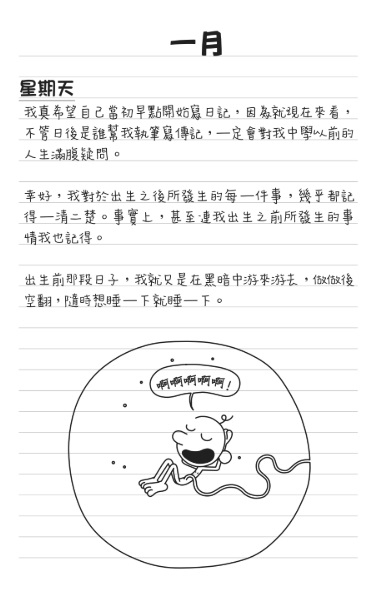 一月
星期天
我真希望自己當初早點開始寫日記，因為就現在來看，
不管日後是誰幫我執筆寫傳記，一定會對我中學以前的
人生滿腹疑問。
幸好，我對於出生之後所發生的每一件事，幾乎都記
得一清二楚。事實上，甚至連我出生之前所發生的事
情我也記得。
出生前那段日子，我就只是在黑暗中游來游去，做做後
空翻，隨時想睡一下就睡一下。
啊啊啊啊啊！